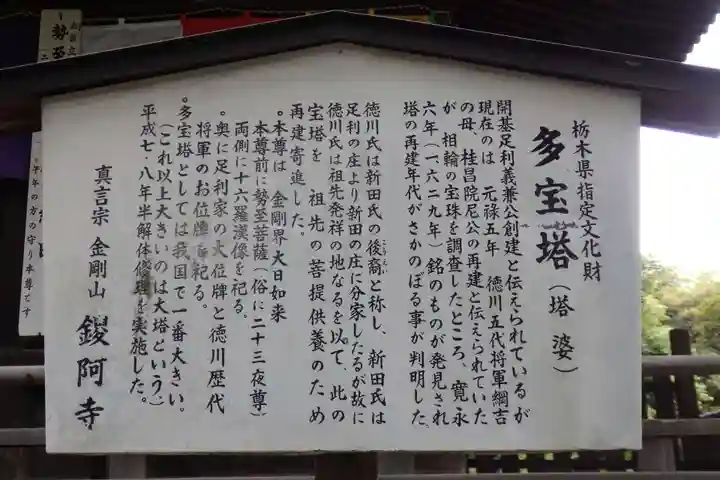 栃木県指定文化財
多宝塔（塔婆）
開基足利義兼公創建と伝えられているが
現在のは 元禄五年 徳川五代将軍綱吉
の母、桂昌院尼公の再建と伝えられていた
が 相輪の宝珠を調査したところ、寛永
六年（一六二九年）銘のものが発見され
塔の再建年代がさかのぼる事が判明した
徳川氏は新田氏の後裔と称し、新田氏は
こうえい
足利の庄より新田の庄に分家したるが故に
徳川氏は祖先発祥の地なるを以て、此の
宝塔を 祖先の菩提供養のため
再建寄進した。
。本尊は 金剛界大日如来
本尊前に勢至菩薩（俗に二十三夜尊）
両側に十六羅漢像を祀る。
。奥に足利家の大位牌と徳川歴代
将軍のお位牌を祀る。
。多宝塔としては我国で一番大きい。
（これ以上大きいのは大塔という）
平成七・八年半解体修理を実施した。
真言宗 金剛山 鑁阿寺
勢至
年の方の守り本尊です